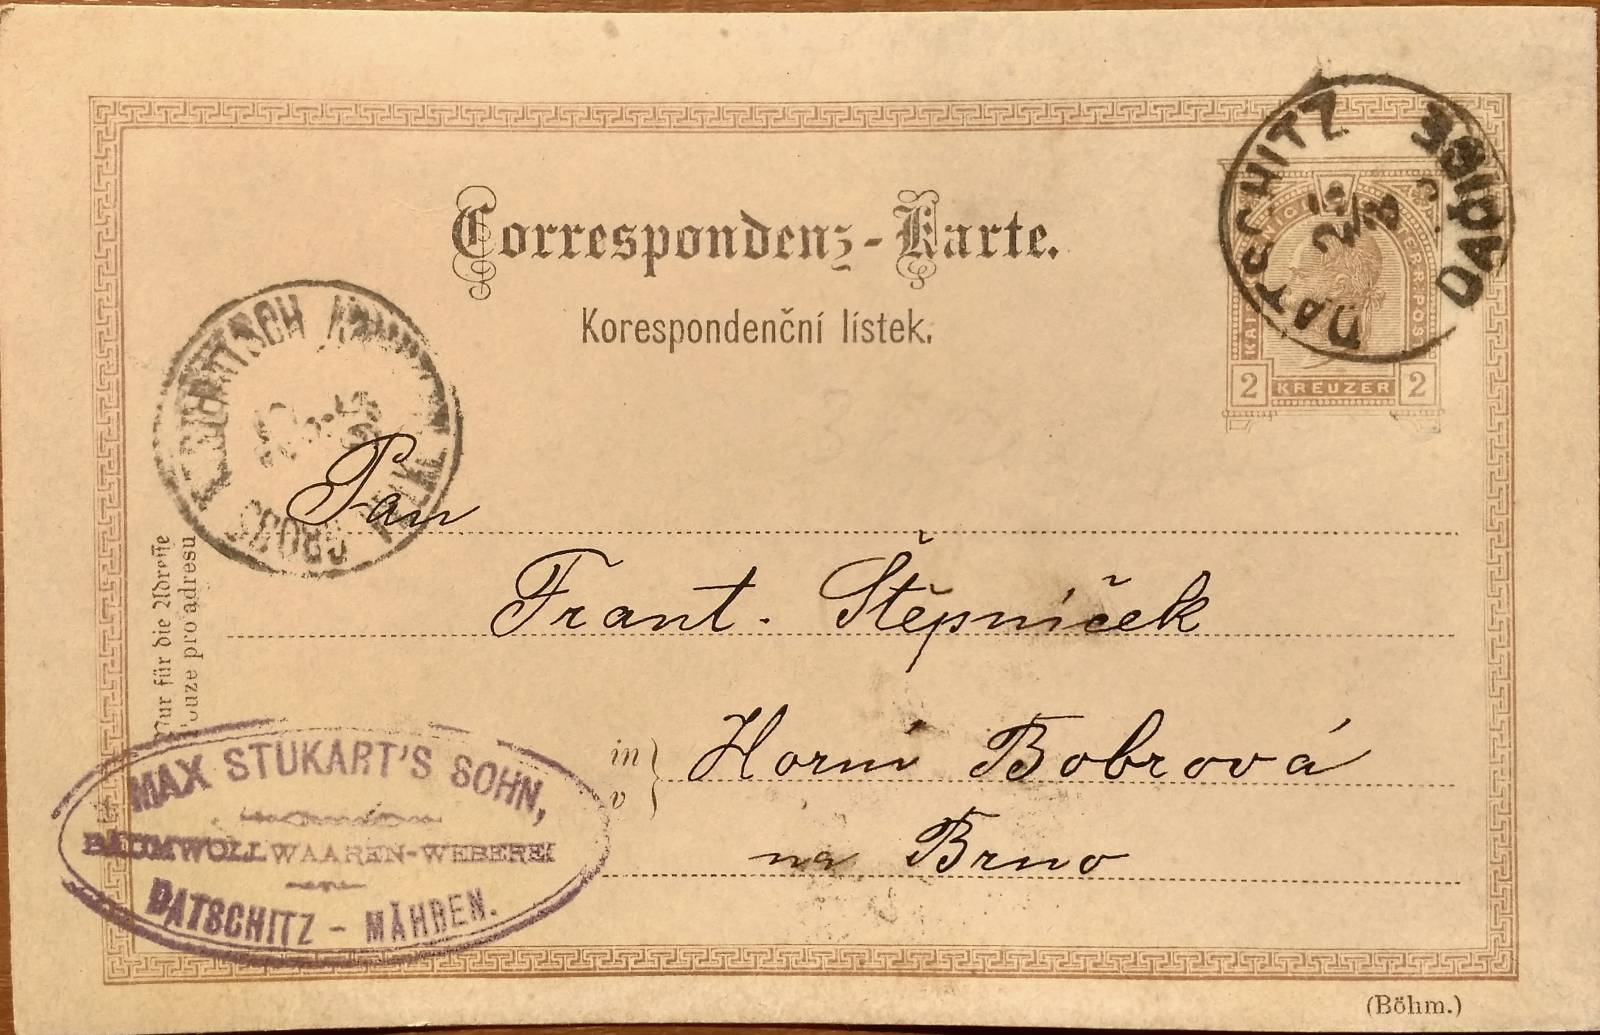 Correspondenz-Karte.
Korespondenční lístek.
DATSCHITZ
DAČICE
2/3
KAIS
OESTERR·POST
2 KREUZER 2
GROSS
Pan
Frant. Štěpníček
in
v
Horní Bobrová
na Brno
Nur für die Adresse
Pouze pro adresu
MAX STUKART'S SOHN,
BAUMWOLLWAAREN-WEBEREI
DATSCHITZ - MÄHREN.
(Böhm.)